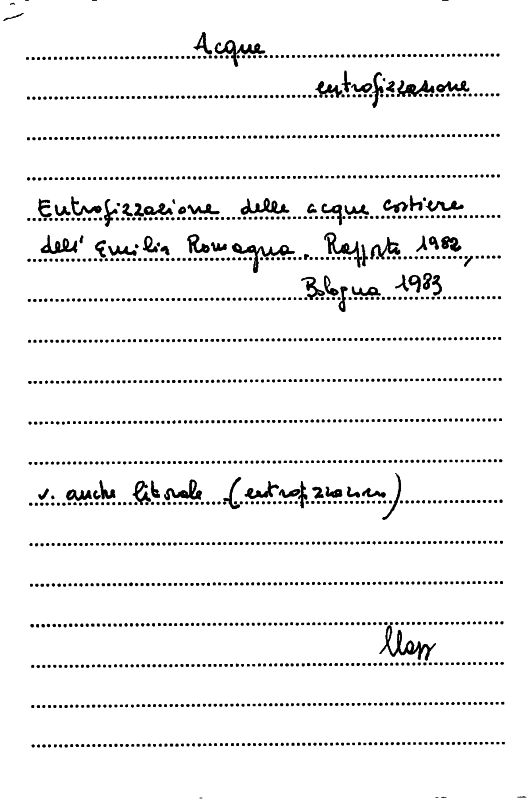 Acque
eutrofizzazione
Eutrofizzazione delle acque costiere
dell' Emilia Romagna. Rapporto 1982,
Bologna 1983
v. anche litorale (eutrofizzazione)